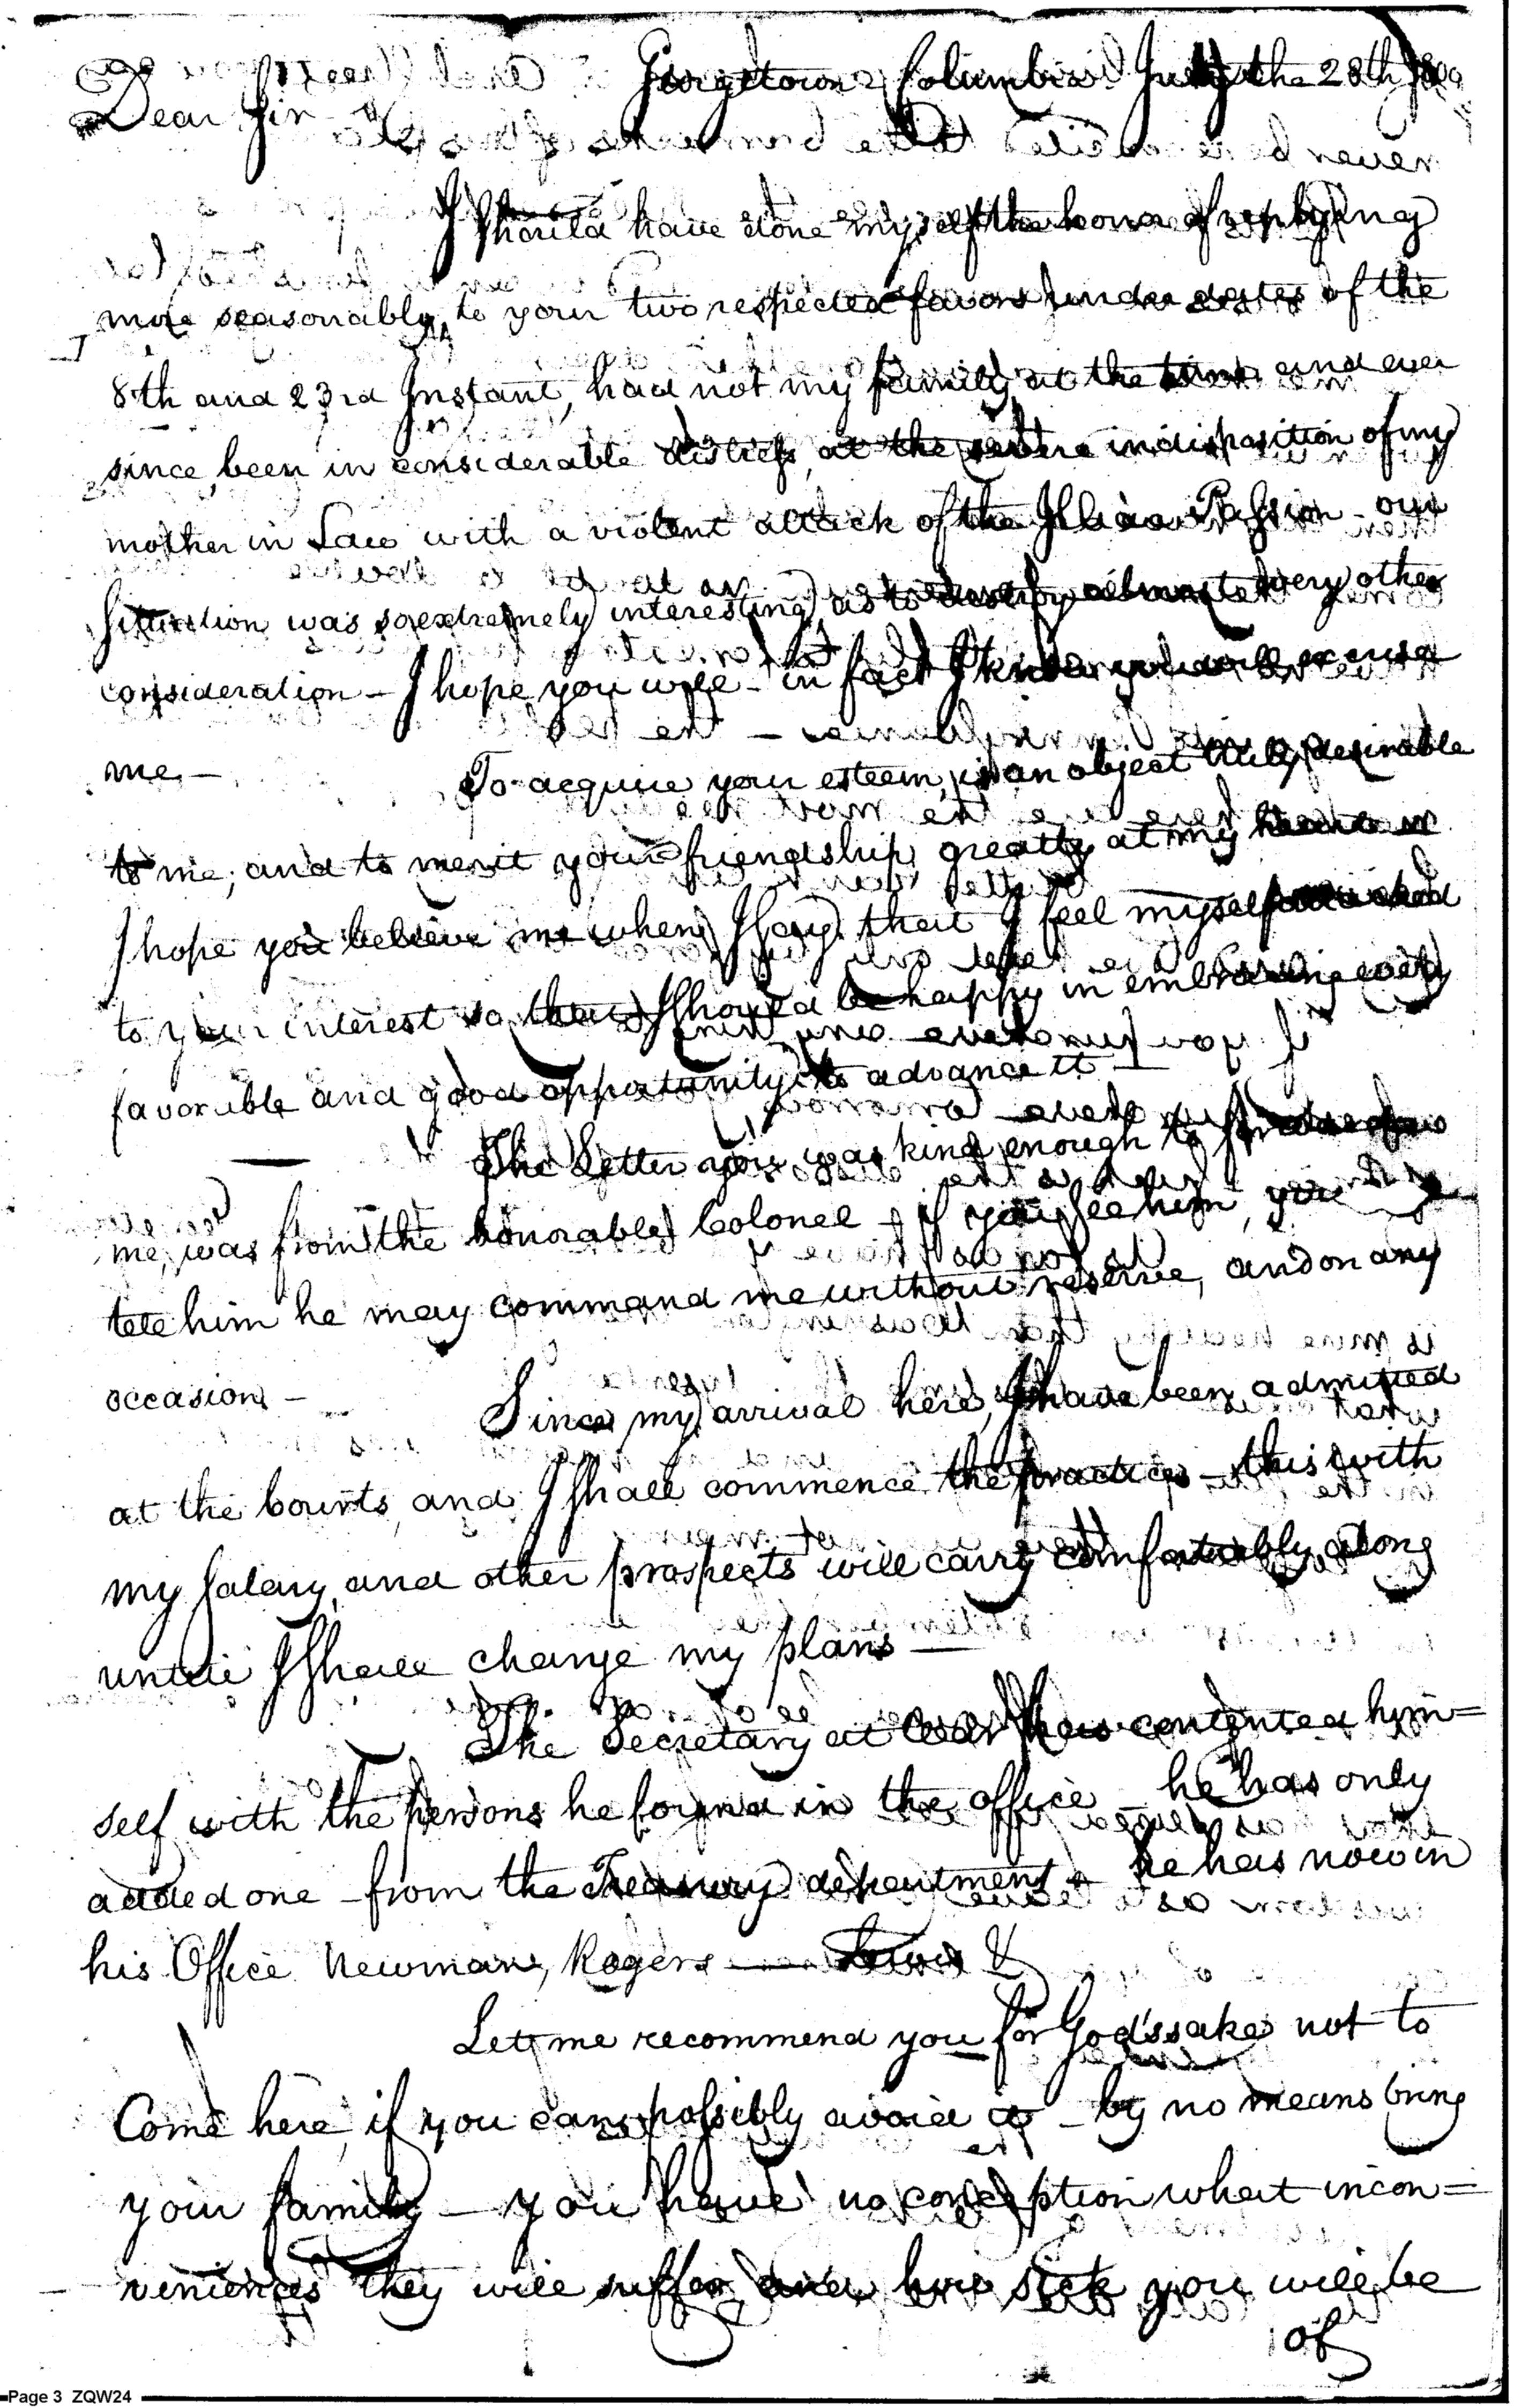 Georgetown Columbia July the 28th 1800
Dear Sir
I should have done myself the honor of replying
more seasonably, to your two respected favors under dates of the
8th and 23rd Instant, had not my family, at the time and ever
since, been in considerable distress, at the severe indisposition of my
mother in Law with a violent attack of the Illiac Passion - our
situation was so extremely interesting, as to destroy almost every other
consideration - I hope you will - in fact I know you will excuse
me. -
To acquire your esteem, is an object truly desirable
to me; and to merit your friendship greatly at my heart
I hope you believe me when I say that I feel myself attached
to your interest so that I should be happy in embracing every
favorable and good opportunity to advance it -
The Letter you was kind enough to forward
me, was from the honorable Colonel - if you see him, you
tell him he may command me without reserve, and on any
occasion -
Since my arrival here, I have been admitted
at the Courts, and I shall commence the practice - this with
my salary, and other prospects will carry comfortably along
until I shall change my plans -
The Secretary at War has contented him=
self with the persons he found in the office - he has only
added one - from the Treasury department - he has now in
his Office Newman, Rogers — Lewis &
Let me recommend you for God's sake not to
Come here, if you can possibly avoid it - by no means bring
your family - you have no conception what incon=
veniences they will suffer, and how sick you will be
of
Page 3 ZQW24